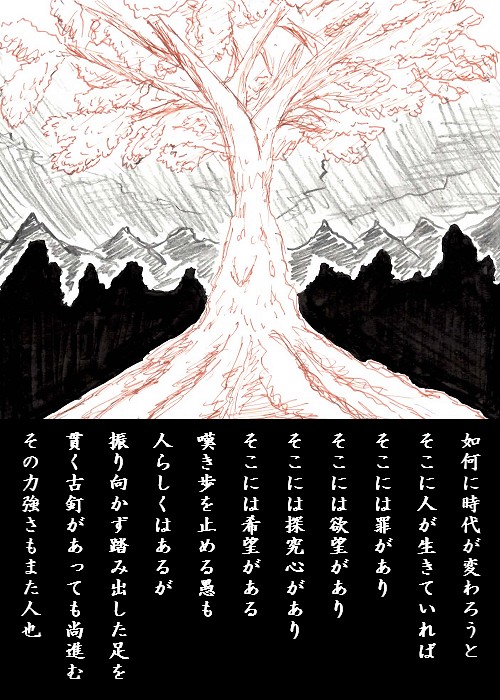 如何に時代が変わろうと
そこに人が生きていれば
そこには罪があり
そこには欲望があり
そこには探究心があり
そこには希望がある
嘆き歩を止める愚も
人らしくはあるが
振り向かず踏み出した足を
貫く古釘があっても尚進む
その力強さもまた人也